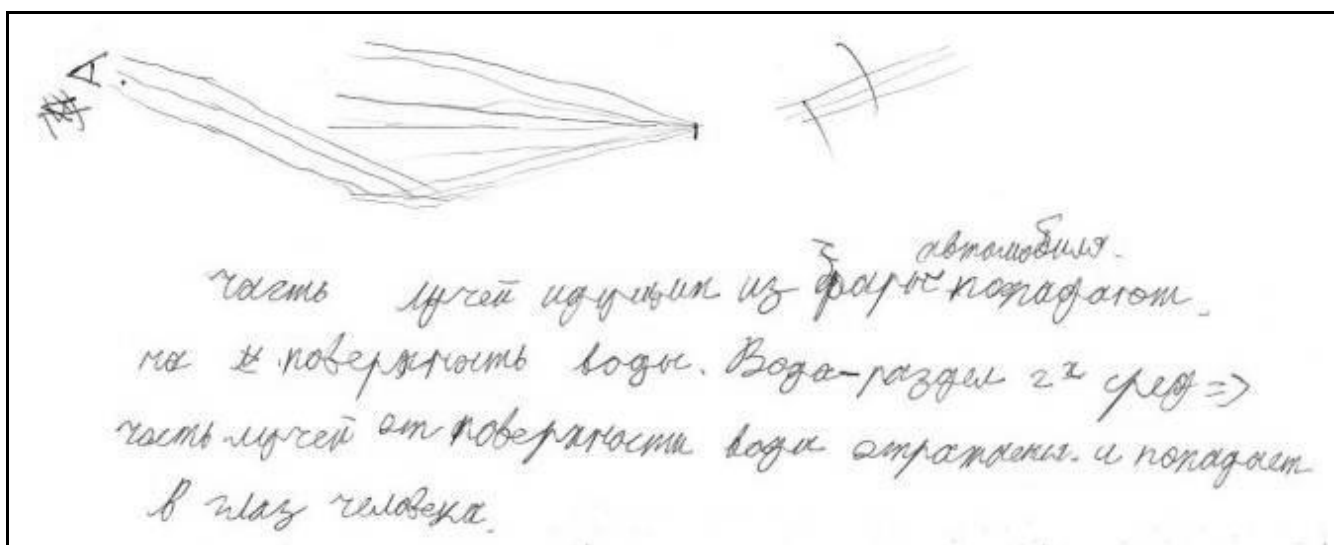 A
автомобиля.
часть лучей идущих из фары попадают
на поверхность воды. Вода-раздел 2х сред =>
часть лучей от поверхности воды отражены. и попадает
в глаз человека.